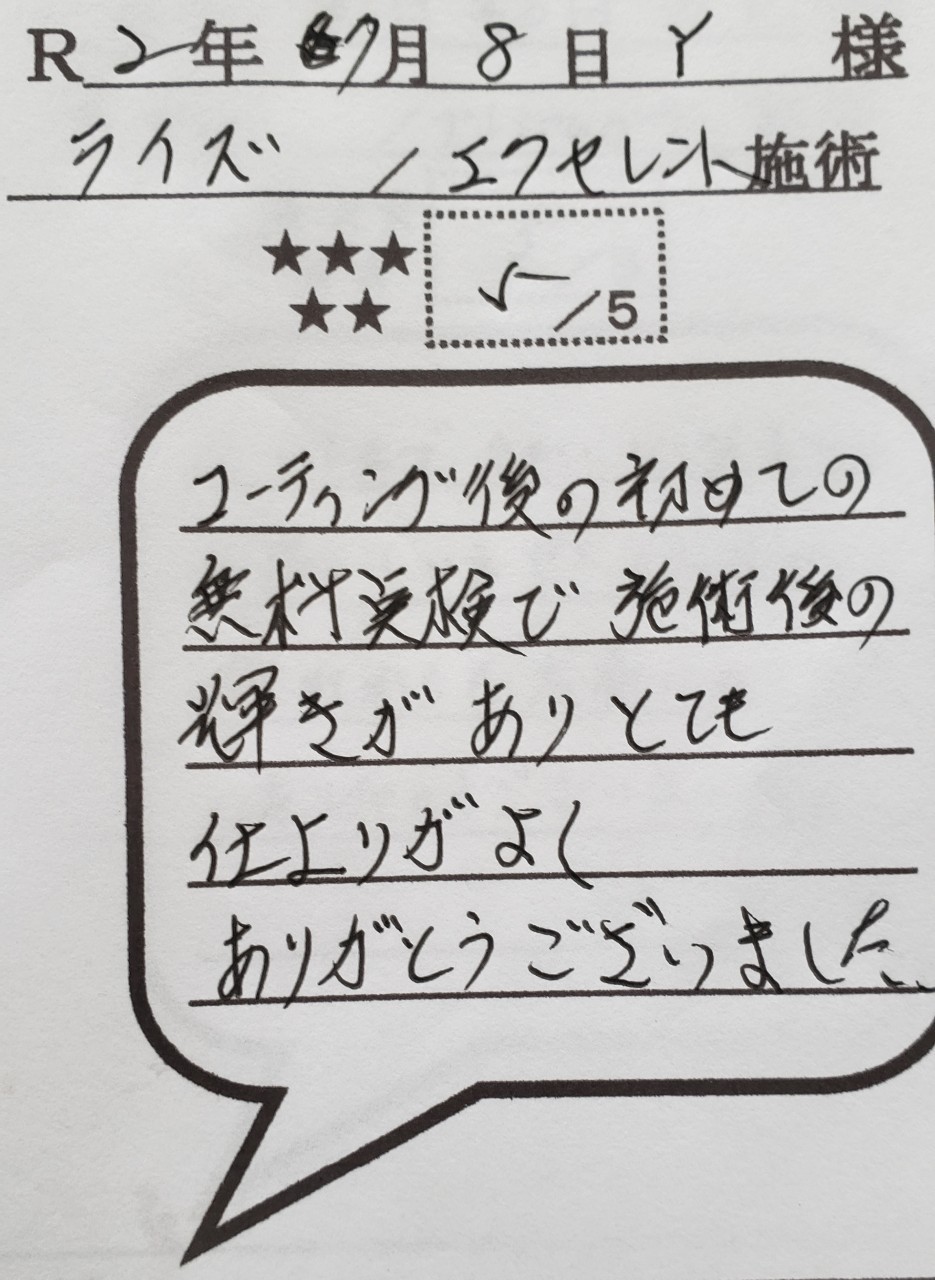 R2年7月8日 Y 様
ライズ / エクセレント施術
★★★
★★
5/5
コーティング後の初めての
無料実検で 施術後の
輝きが あり とても
仕上りが よく
ありがとうございました。